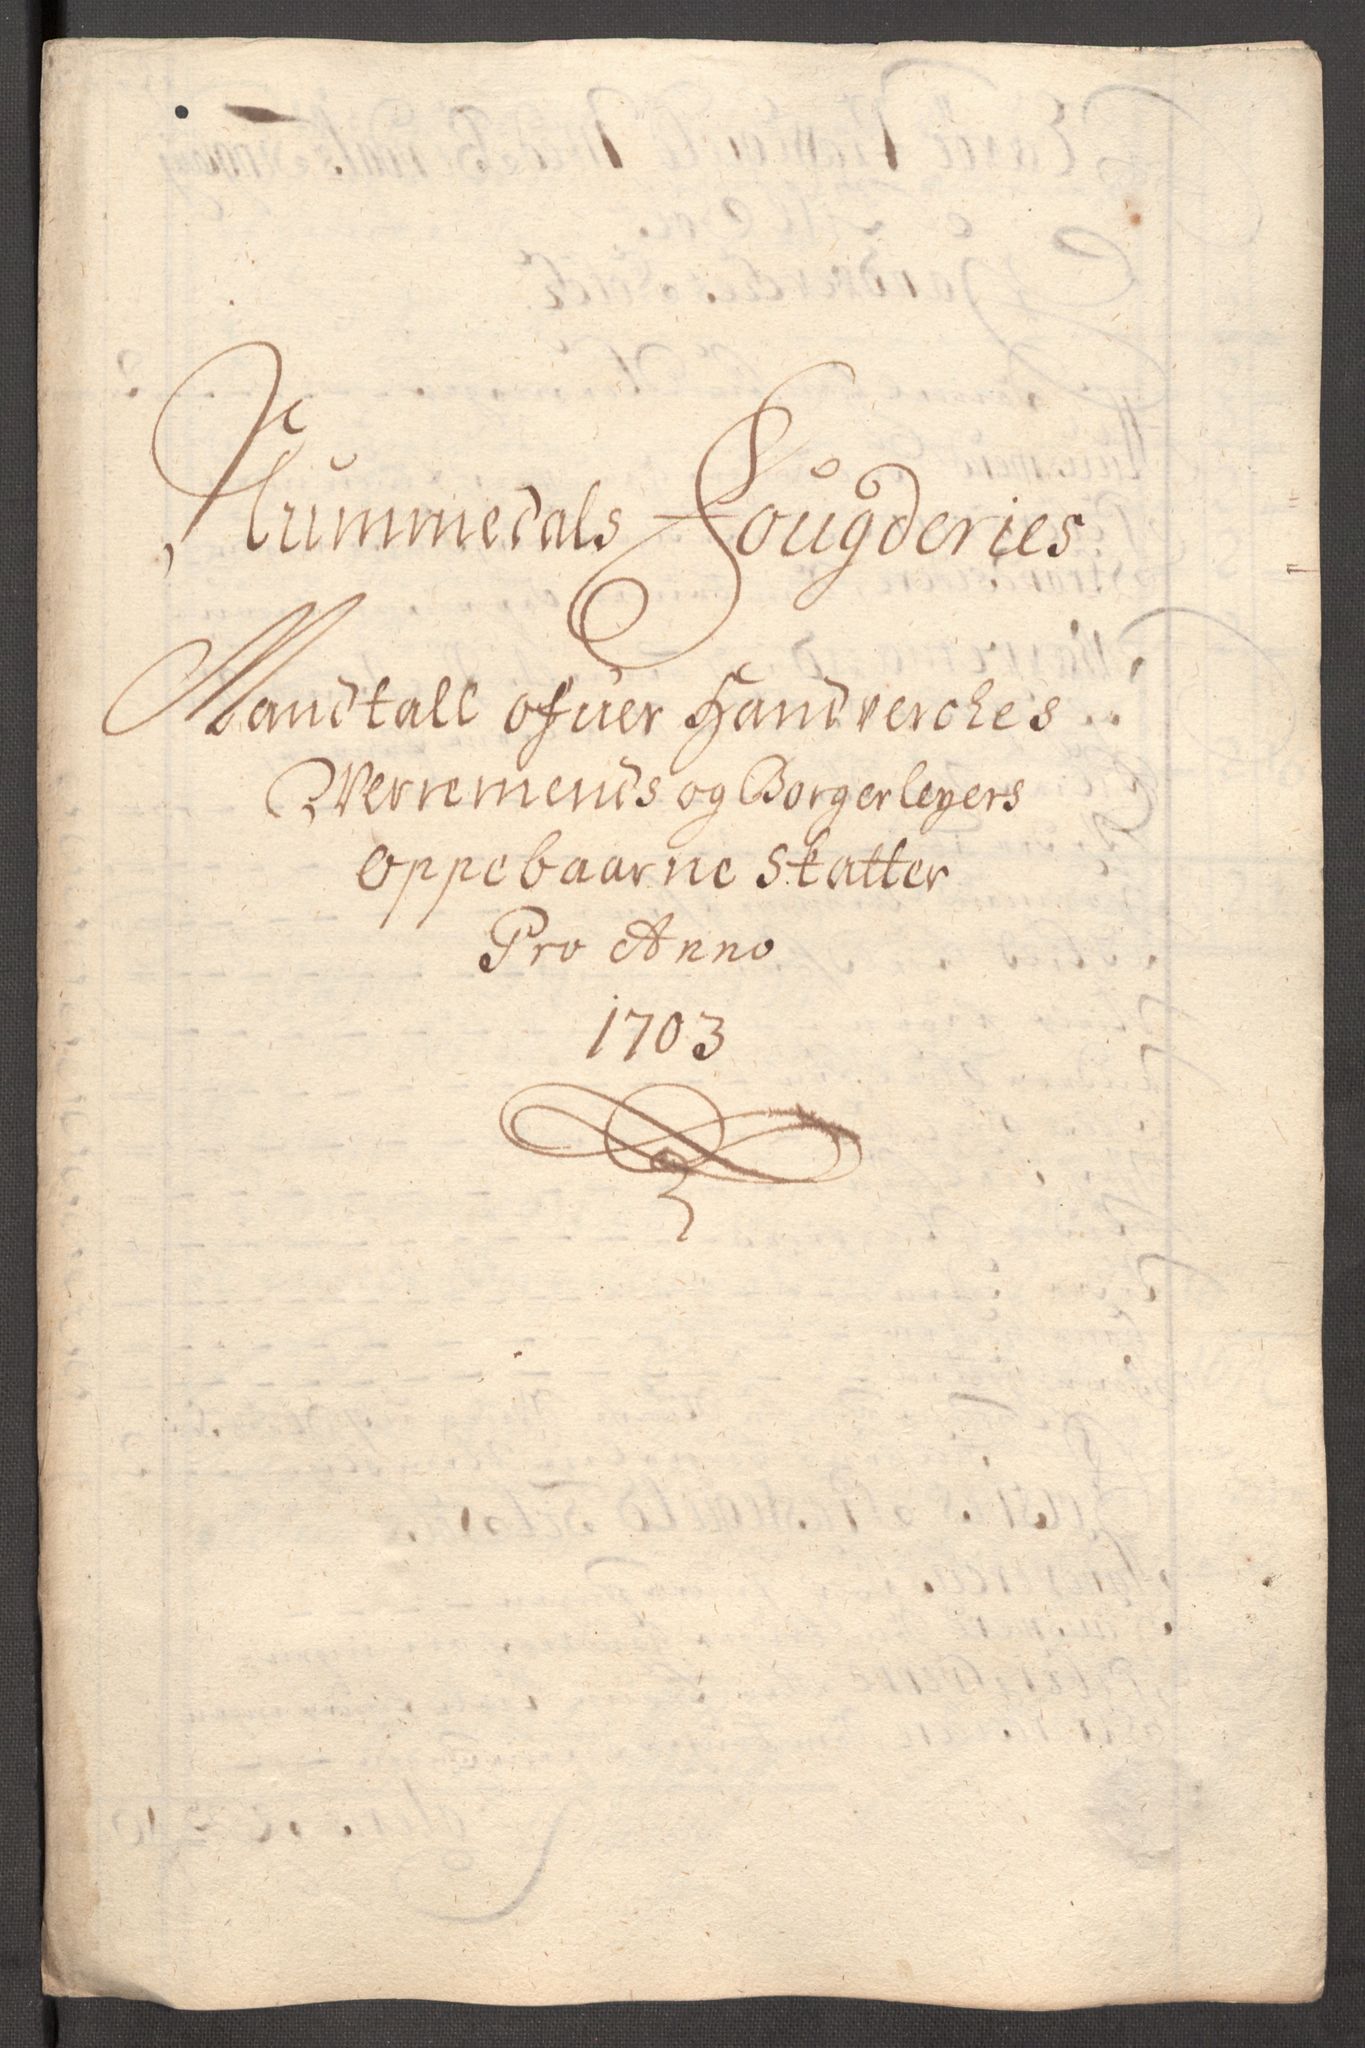 Nummedals Fougderies
Mandtall ofuer Handverches
Werremends og Borgerleyers
Oppebaarne Skatter
Pro Anno
1703